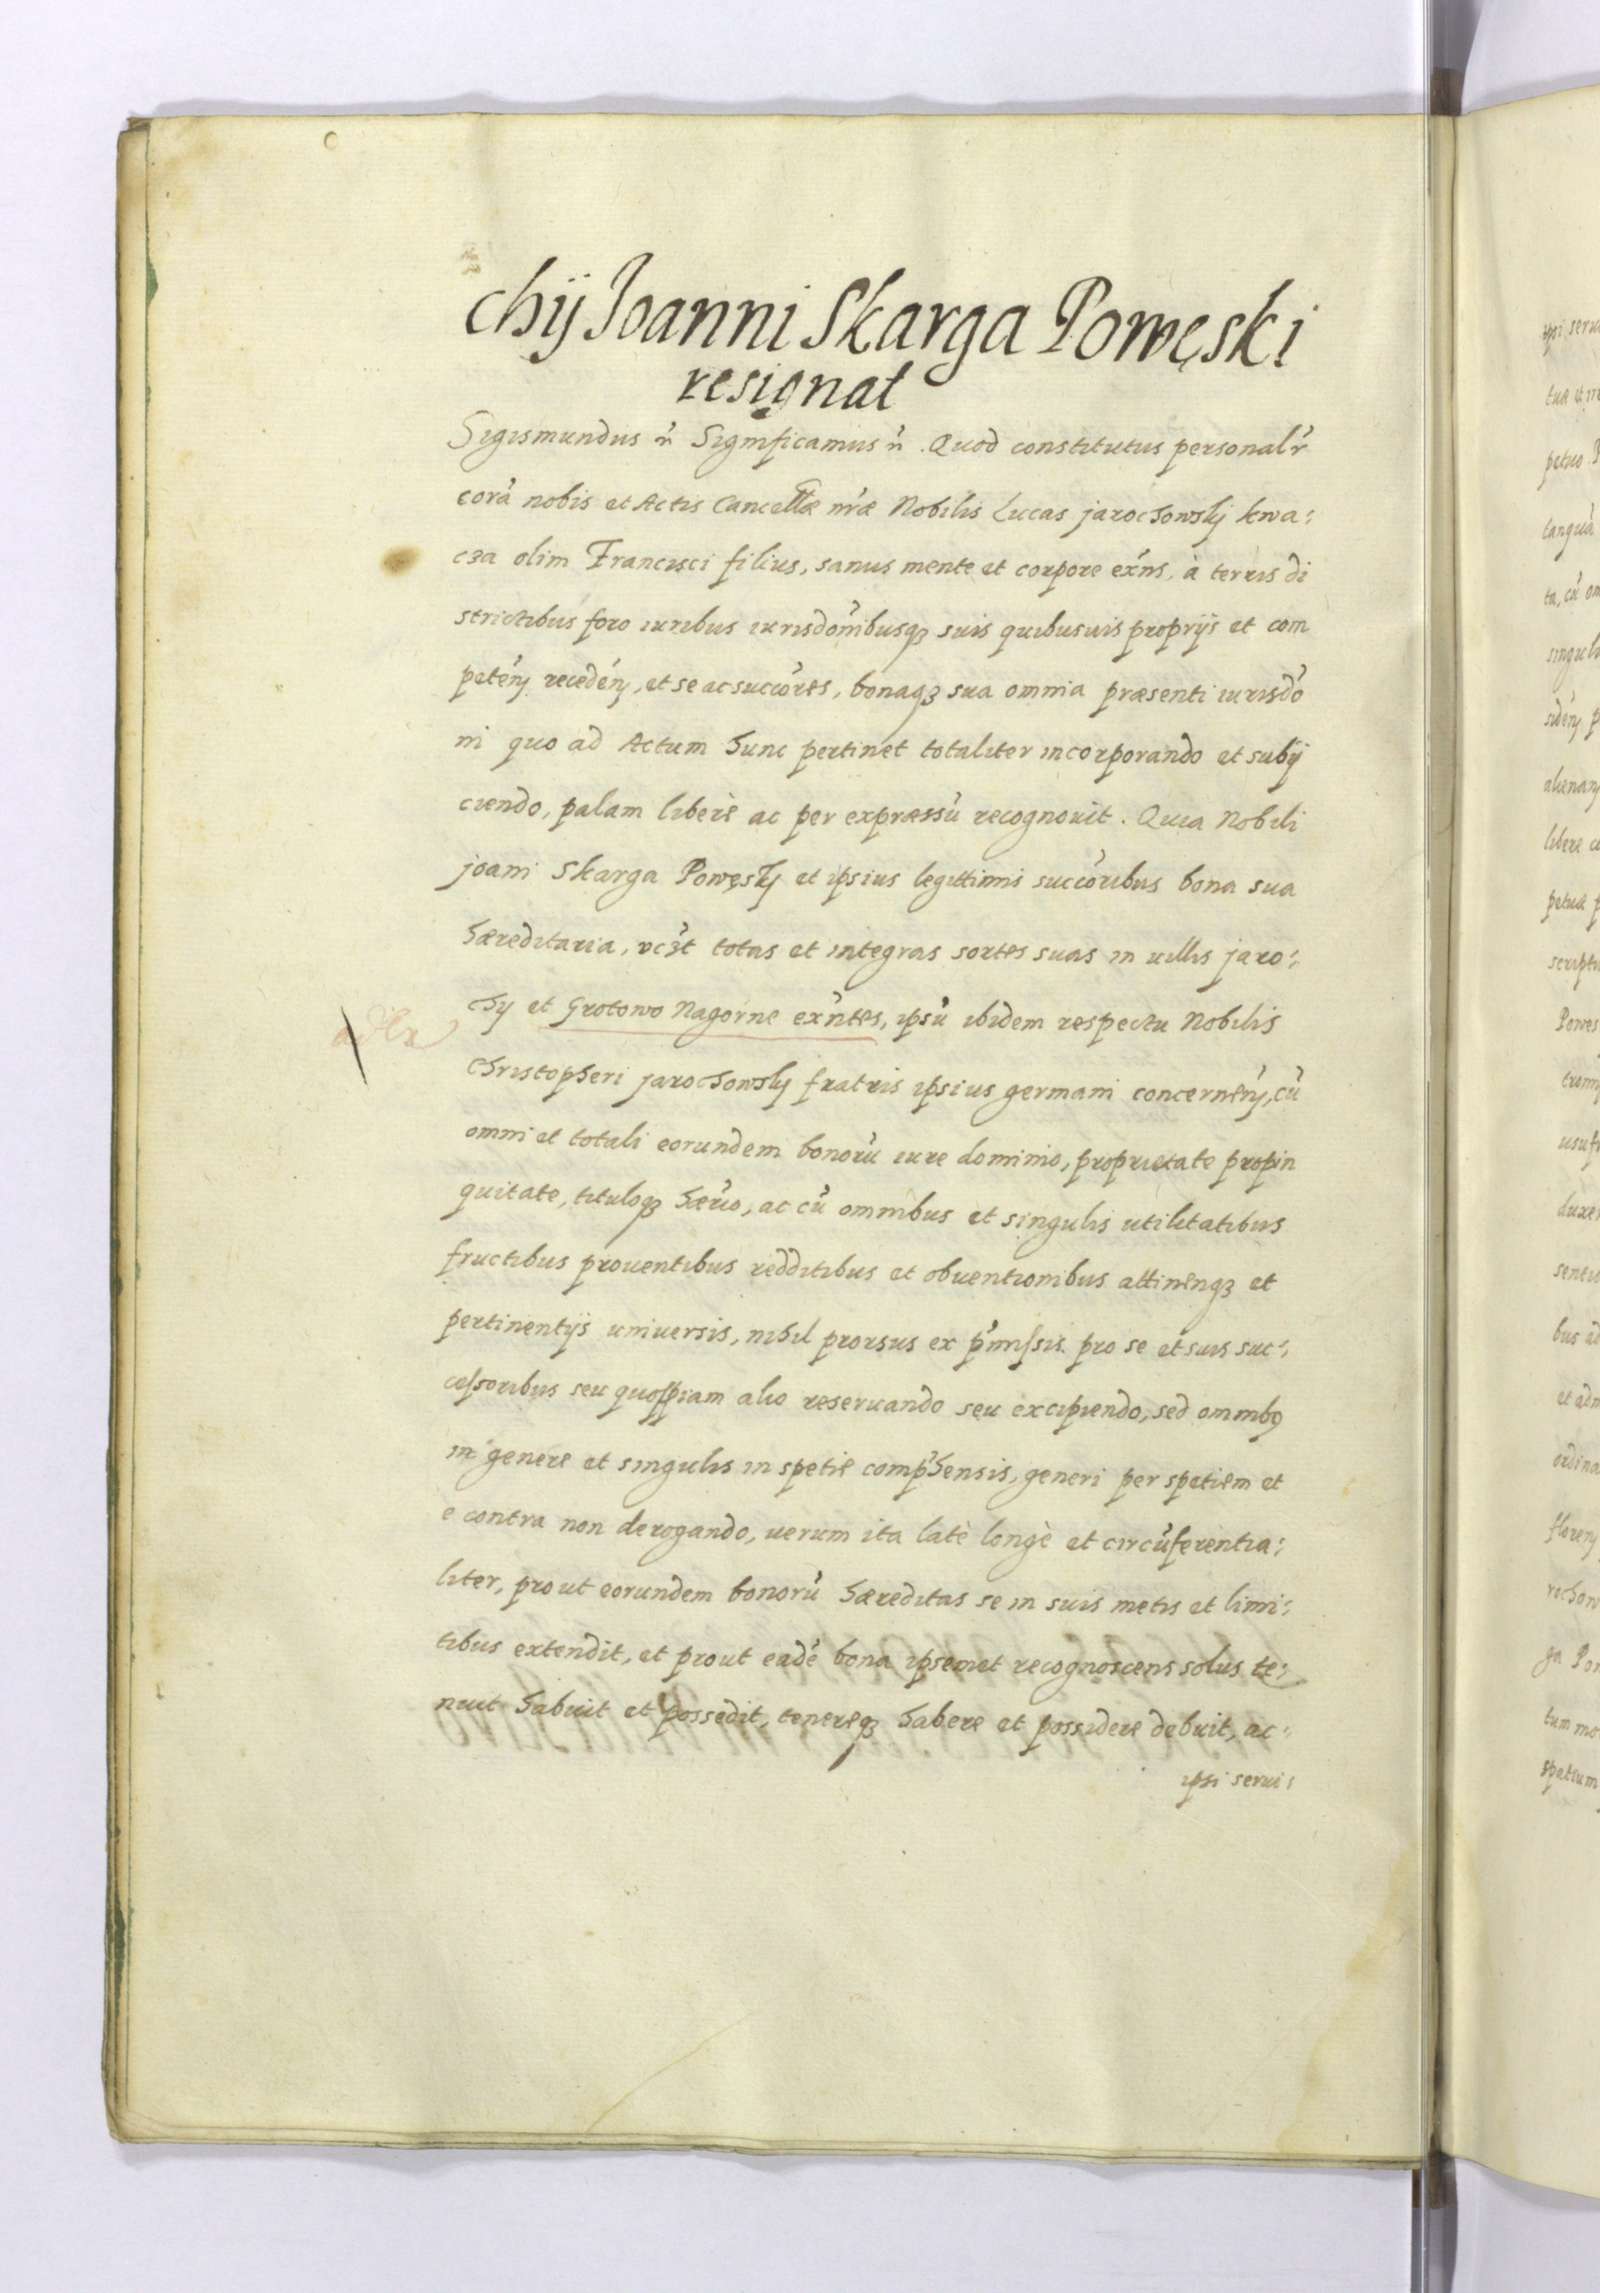 chÿ Joanni Skarga Powęski
resignat
Sigismundus ñ Significamus ñ. Quod constitutus personalr̃
corã nobis et Actis Cancellæ nr̃æ Nobilis Lucas jarochowskj kwa:
cza olim Francisci filius, sanus mente et corpore exñs, à terris di
strictibus foro iuribus iurisdoñibusqȝ suis quibusuis proprijs et com
peteñ recedeñ, et se ac succőres, bonaqȝ sua omnia præsenti iurisdő
ni quo ad Actum hunc pertinet totaliter incorporando et subij
ciendo, palam liberè ac per expræssũ recognouit. Quia Nobili
joani Skarga Powęskj et ipsius legittimis succőribus bona sua
hæreditaria, vczt totas et integras sortes suas in uillis jaro:
chy et Grotowo Nagorne exñtes, ipsũ ibidem respectu Nobilis
christopheri jarochowskj fratris ipsius germani concerneñ, cũ
omni et totali eorundem bonorũ iure dominio, proprietate propin
quitate, tituloqȝ hærio, ac cũ omnibus et singulis utilitatibus
fructibus prouentibus redditibus et obuentionibus attinenqȝ et
pertinentijs uniuersis, nihil prorsus ex p̃miſsis pro se et suis suc:
ceſsoribus seu quoſpiam alio reseruando seu excipiendo, sed omnibꝰ
in genere et singulis in spetie comp̃hensis, generi per spetiem et
e contra non derogando, uerum ita latè longè et circũferentia:
liter, prout eorundem bonorũ hæreditas se in suis metis et limi:
tibus extendit, et prout eadẽ bona ipsemet recognoscens solus te:
nuit habuit et possedit, tenereqȝ habere et possidere debuit, ac:
ipsi serui: